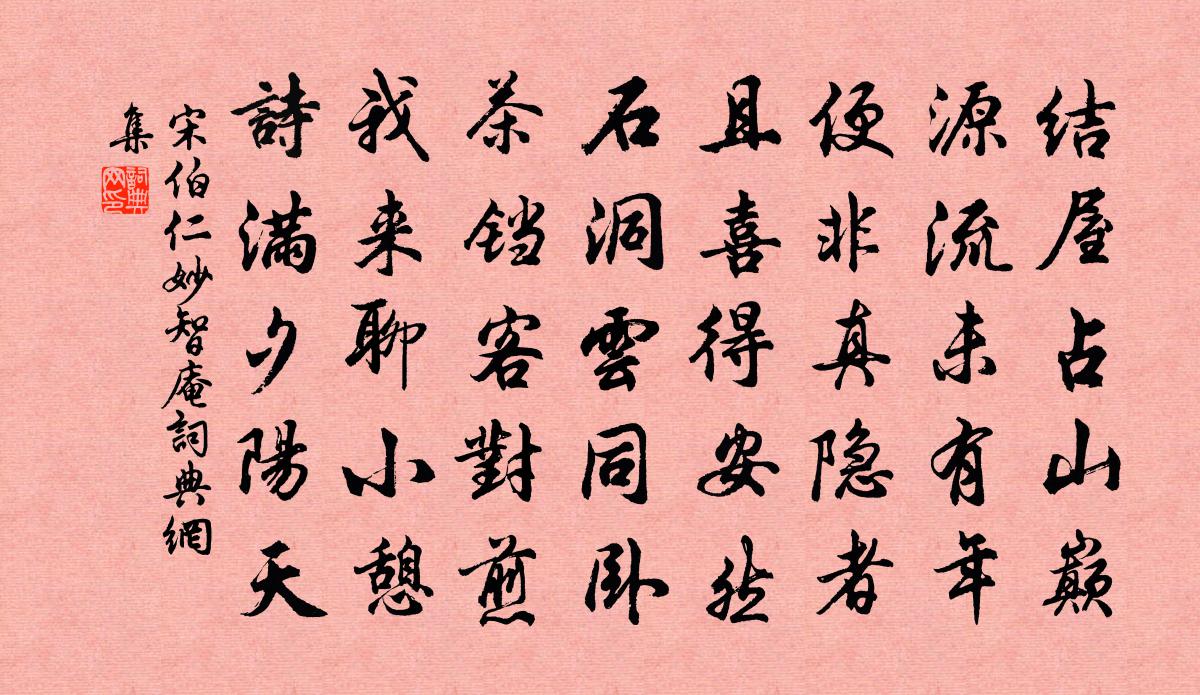 结屋占山巅
源流未有年
便非真隐者
且喜得安然
石洞雲同卧
茶铛客對煎
我来聊小憩
詩滿夕陽天
宋伯仁妙智庵詞典網
集
詞典網印